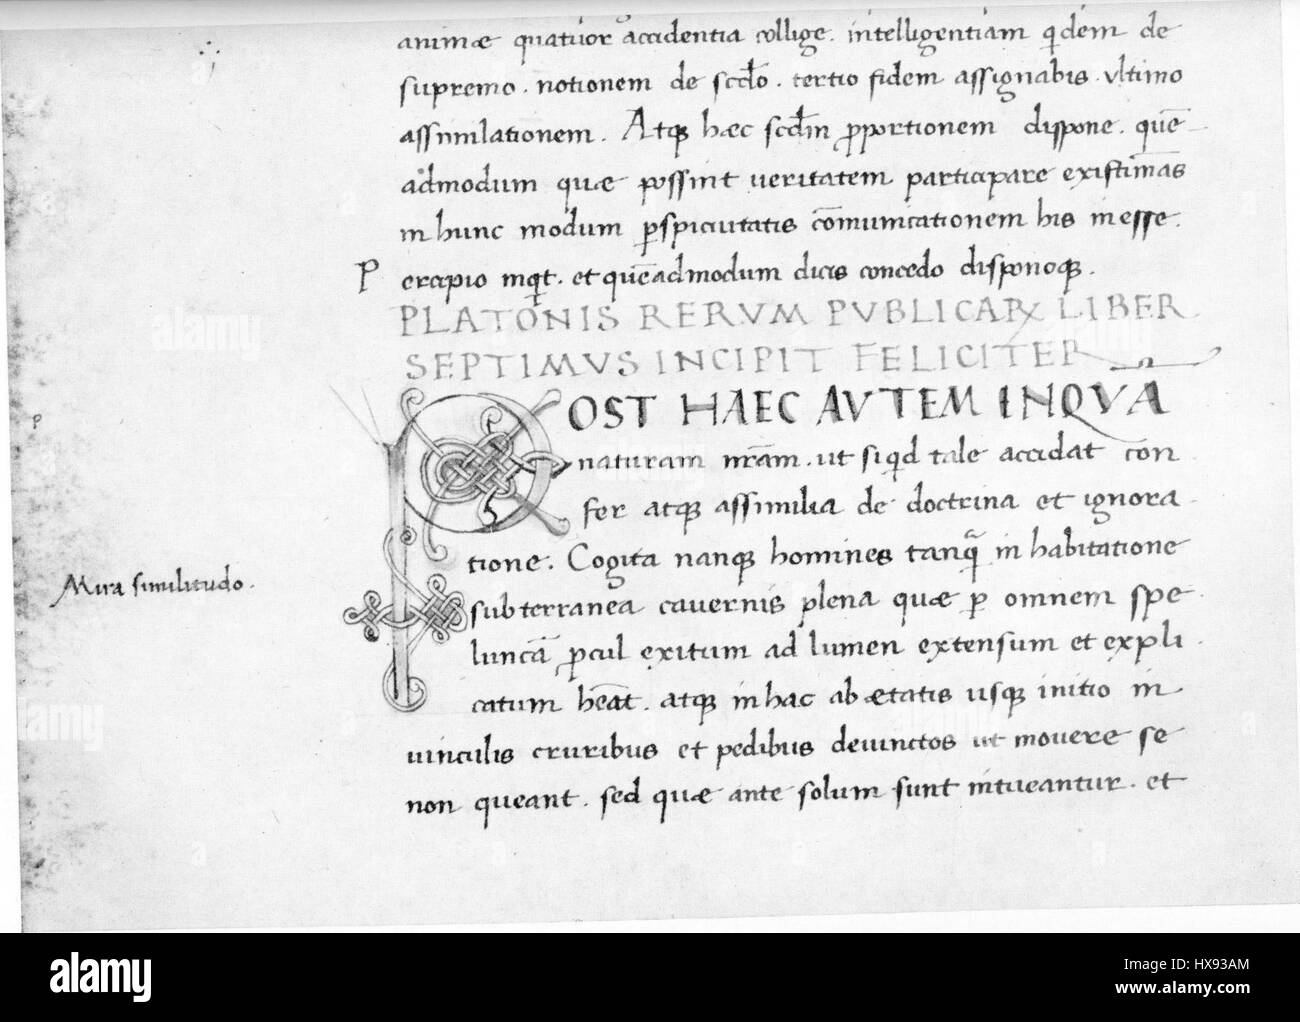 animae quatuor accidentia collige. intelligentiam q̇dem de
supremo. notionem de scd̄o. tertio fidem assignabis. vltimo
assimilationem. Atqꝫ haec scd̄m ꝓportionem dispone. quē
admodum quae possint veritatem participare existimas
in hunc modum ꝑspicuitatis cōmunicationem his inesse.
Percipio inqt. et quēadmodum dicis concedo disponoqꝫ.
PLATONIS RERVM PVBLICARꝜ LIBER
SEPTIMVS INCIPIT FELICITER
POST HAEC AVTEM INQVA
naturam nr̄am. ut siqd tale accidat con
fer atqꝫ assimilia de doctrina et ignora
tione. Cogita nanqꝫ homines tanq̄ in habitatione
Mira similitudo.
subterranea cavernis plena quae ꝑ omnem spe
luncā ꝓcul exitum ad lumen extensum et expli
catum hēat. atqꝫ in hac ab aetatis usqꝫ initio in
vinculis cruribus et pedibus devinctos ut movere se
non queant. sed quae ante solum sunt intueantur. et
P
alamy
Image ID: HX93AM
www.alamy.com